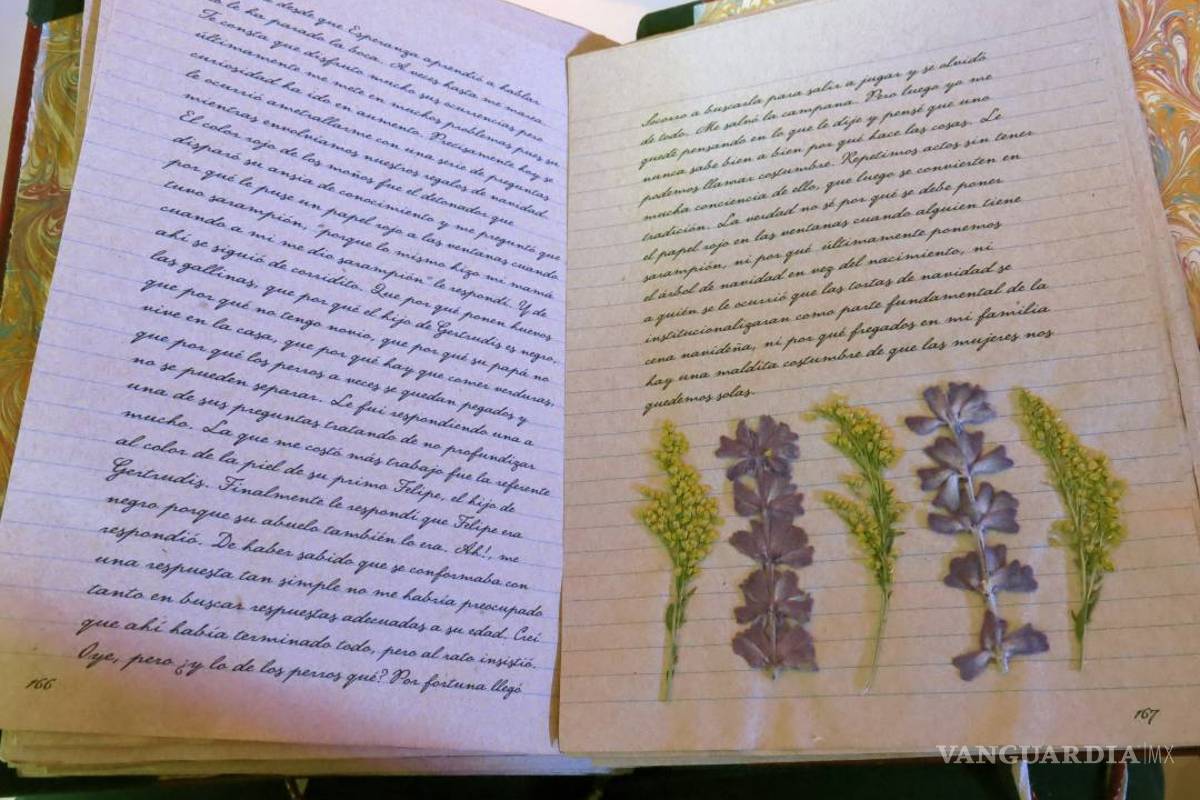 desde que Esperanza aprendió a hablar
no le ha parado la boca. A veces hasta me marea.
Te consta que disfruto mucho sus ocurrencias pero
últimamente me mete en muchos problemas pues su
curiosidad ha ido en aumento. Precisamente hoy se
le ocurrió ametrallarme con una serie de preguntas
mientras envolvíamos nuestros regalos de navidad.
El color rojo de los moños fue el detonador que
disparó su ansia de conocimiento y me preguntó que
por qué le puse un papel rojo a las ventanas cuando
tuvo sarampión, "porque lo mismo hizo mi mamá
cuando a mi me dio sarampión" le respondí. Y de
ahí se siguió de corridito. Que por qué ponen huevos
las gallinas, que por qué el hijo de Gertrudis es negro,
que por qué no tengo novio, que por qué su papá no
vive en la casa, que por qué hay que comer verduras,
que por qué los perros a veces se quedan pegados y
no se pueden separar. Le fui respondiendo una a
una de sus preguntas tratando de no profundizar
mucho. La que me costó más trabajo fue la referente
al color de la piel de su primo Felipe, el hijo de
Gertrudis. Finalmente le respondí que Felipe era
negro porque su abuelo también lo era. Ah!, me
respondió. De haber sabido que se conformaba con
una respuesta tan simple no me habría preocupado
tanto en buscar respuestas adecuadas a su edad. Creí
que ahí había terminado todo, pero al rato insistió.
Oye, pero ¿y lo de los perros qué? Por fortuna llegó
166
Socorro a buscarla para salir a jugar y se olvidó
de todo. Me salvó la campana. Pero luego yo me
quedé pensando en lo que le dije y pensé que uno
nunca sabe bien a bien por qué hace las cosas. Le
podemos llamar costumbre. Repetimos actos sin tener
mucha conciencia de ello, que luego se convierten en
tradición. La verdad no sé por qué se debe poner
el papel rojo en las ventanas cuando alguien tiene
sarampión, ni por qué últimamente ponemos
el árbol de navidad en vez del nacimiento, ni
a quién se le ocurrió que las tortas de navidad se
institucionalizaran como parte fundamental de la
cena navideña, ni por qué fregados en mi familia
hay una maldita costumbre de que las mujeres nos
quedemos solas.
167
VANGUARDIA|MX